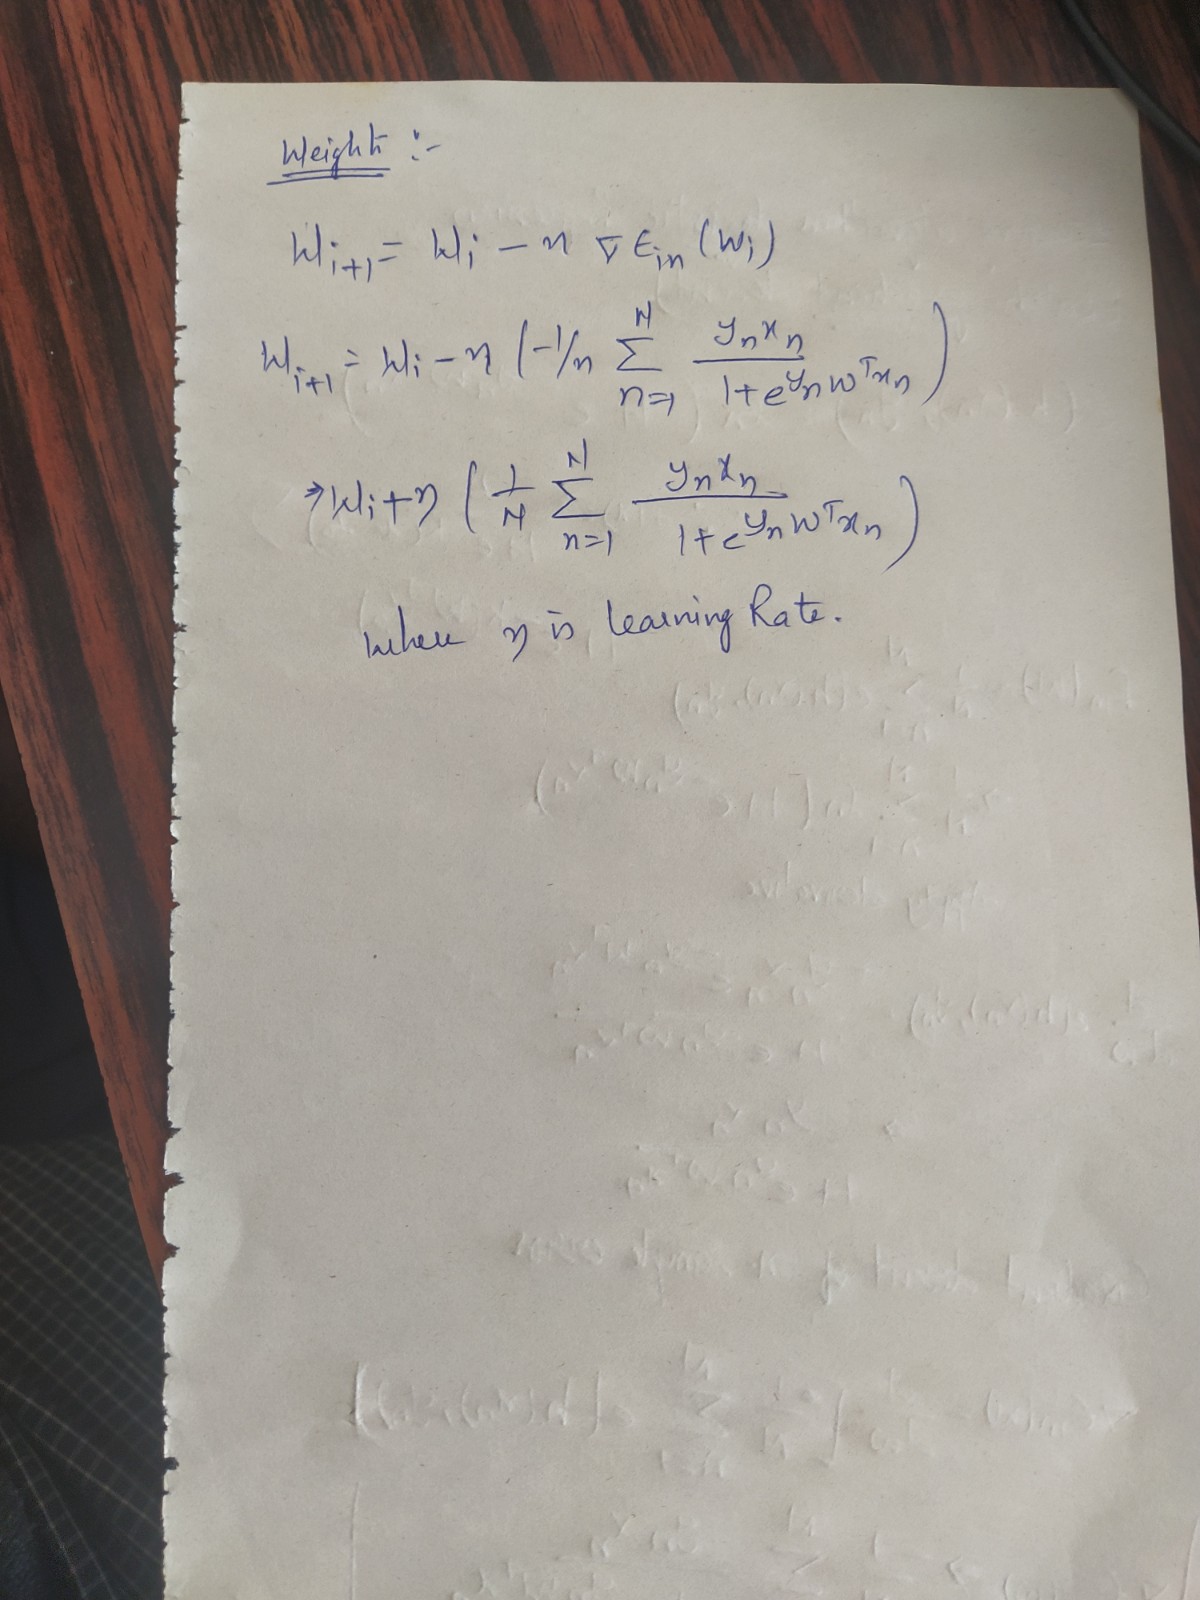 Weight :-
Wi+1 = Wi - η ∇ Ein (Wi)
Wi+1 = Wi - η (-1/n Σ_{n=1}^{N} (yn xn)/(1+e^{yn w^T xn}))
⇒ Wi + η (1/N Σ_{n=1}^{N} (yn xn)/(1+e^{yn w^T xn}))
where η is learning Rate.